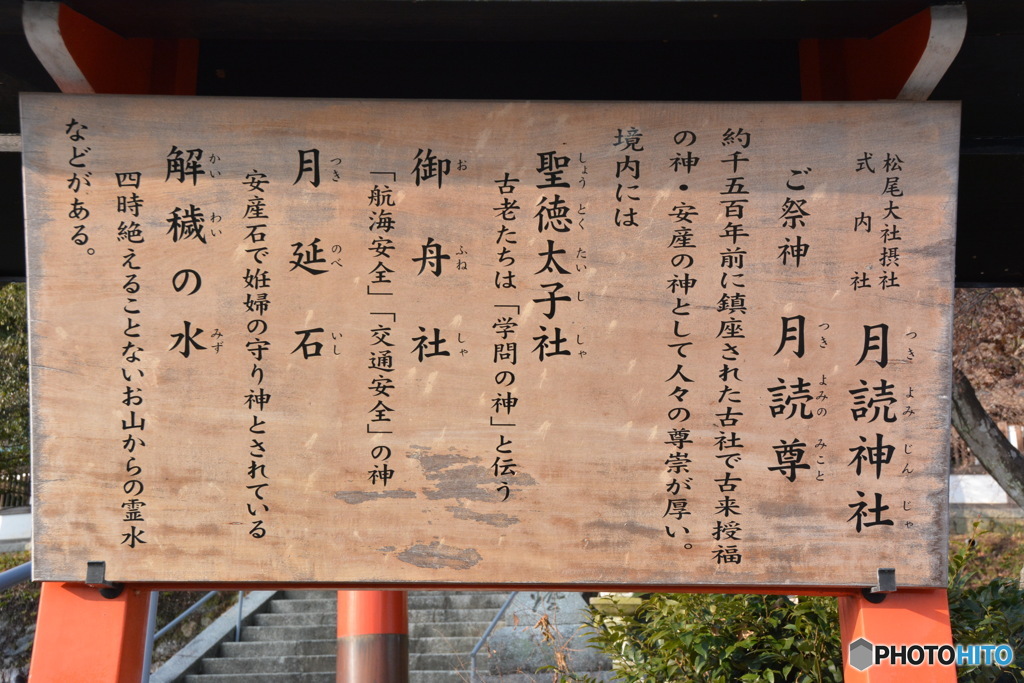 松尾大社摂社
式内社
月読神社
つきよみじんじゃ
ご祭神 月読尊
つきよみのみこと
約千五百年前に鎮座された古社で古来授福
の神・安産の神として人々の尊崇が厚い。
境内には
聖徳太子社
しょうとくたいししゃ
古老たちは「学問の神」と伝う
御舟社
おふねしゃ
「航海安全」「交通安全」の神
月延石
つきのべいし
安産石で姙婦の守り神とされている
解穢の水
かいわいみず
四時絶えることないお山からの霊水
などがある。
PHOTOHITO